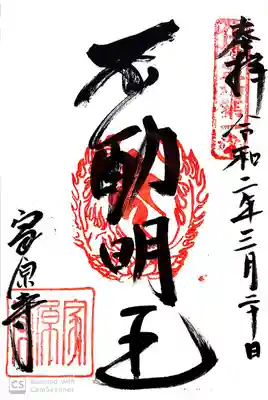 奉拝
令和二年三月二十日
不動明王
家原寺
家原寺
CS Scanned with
CamScanner